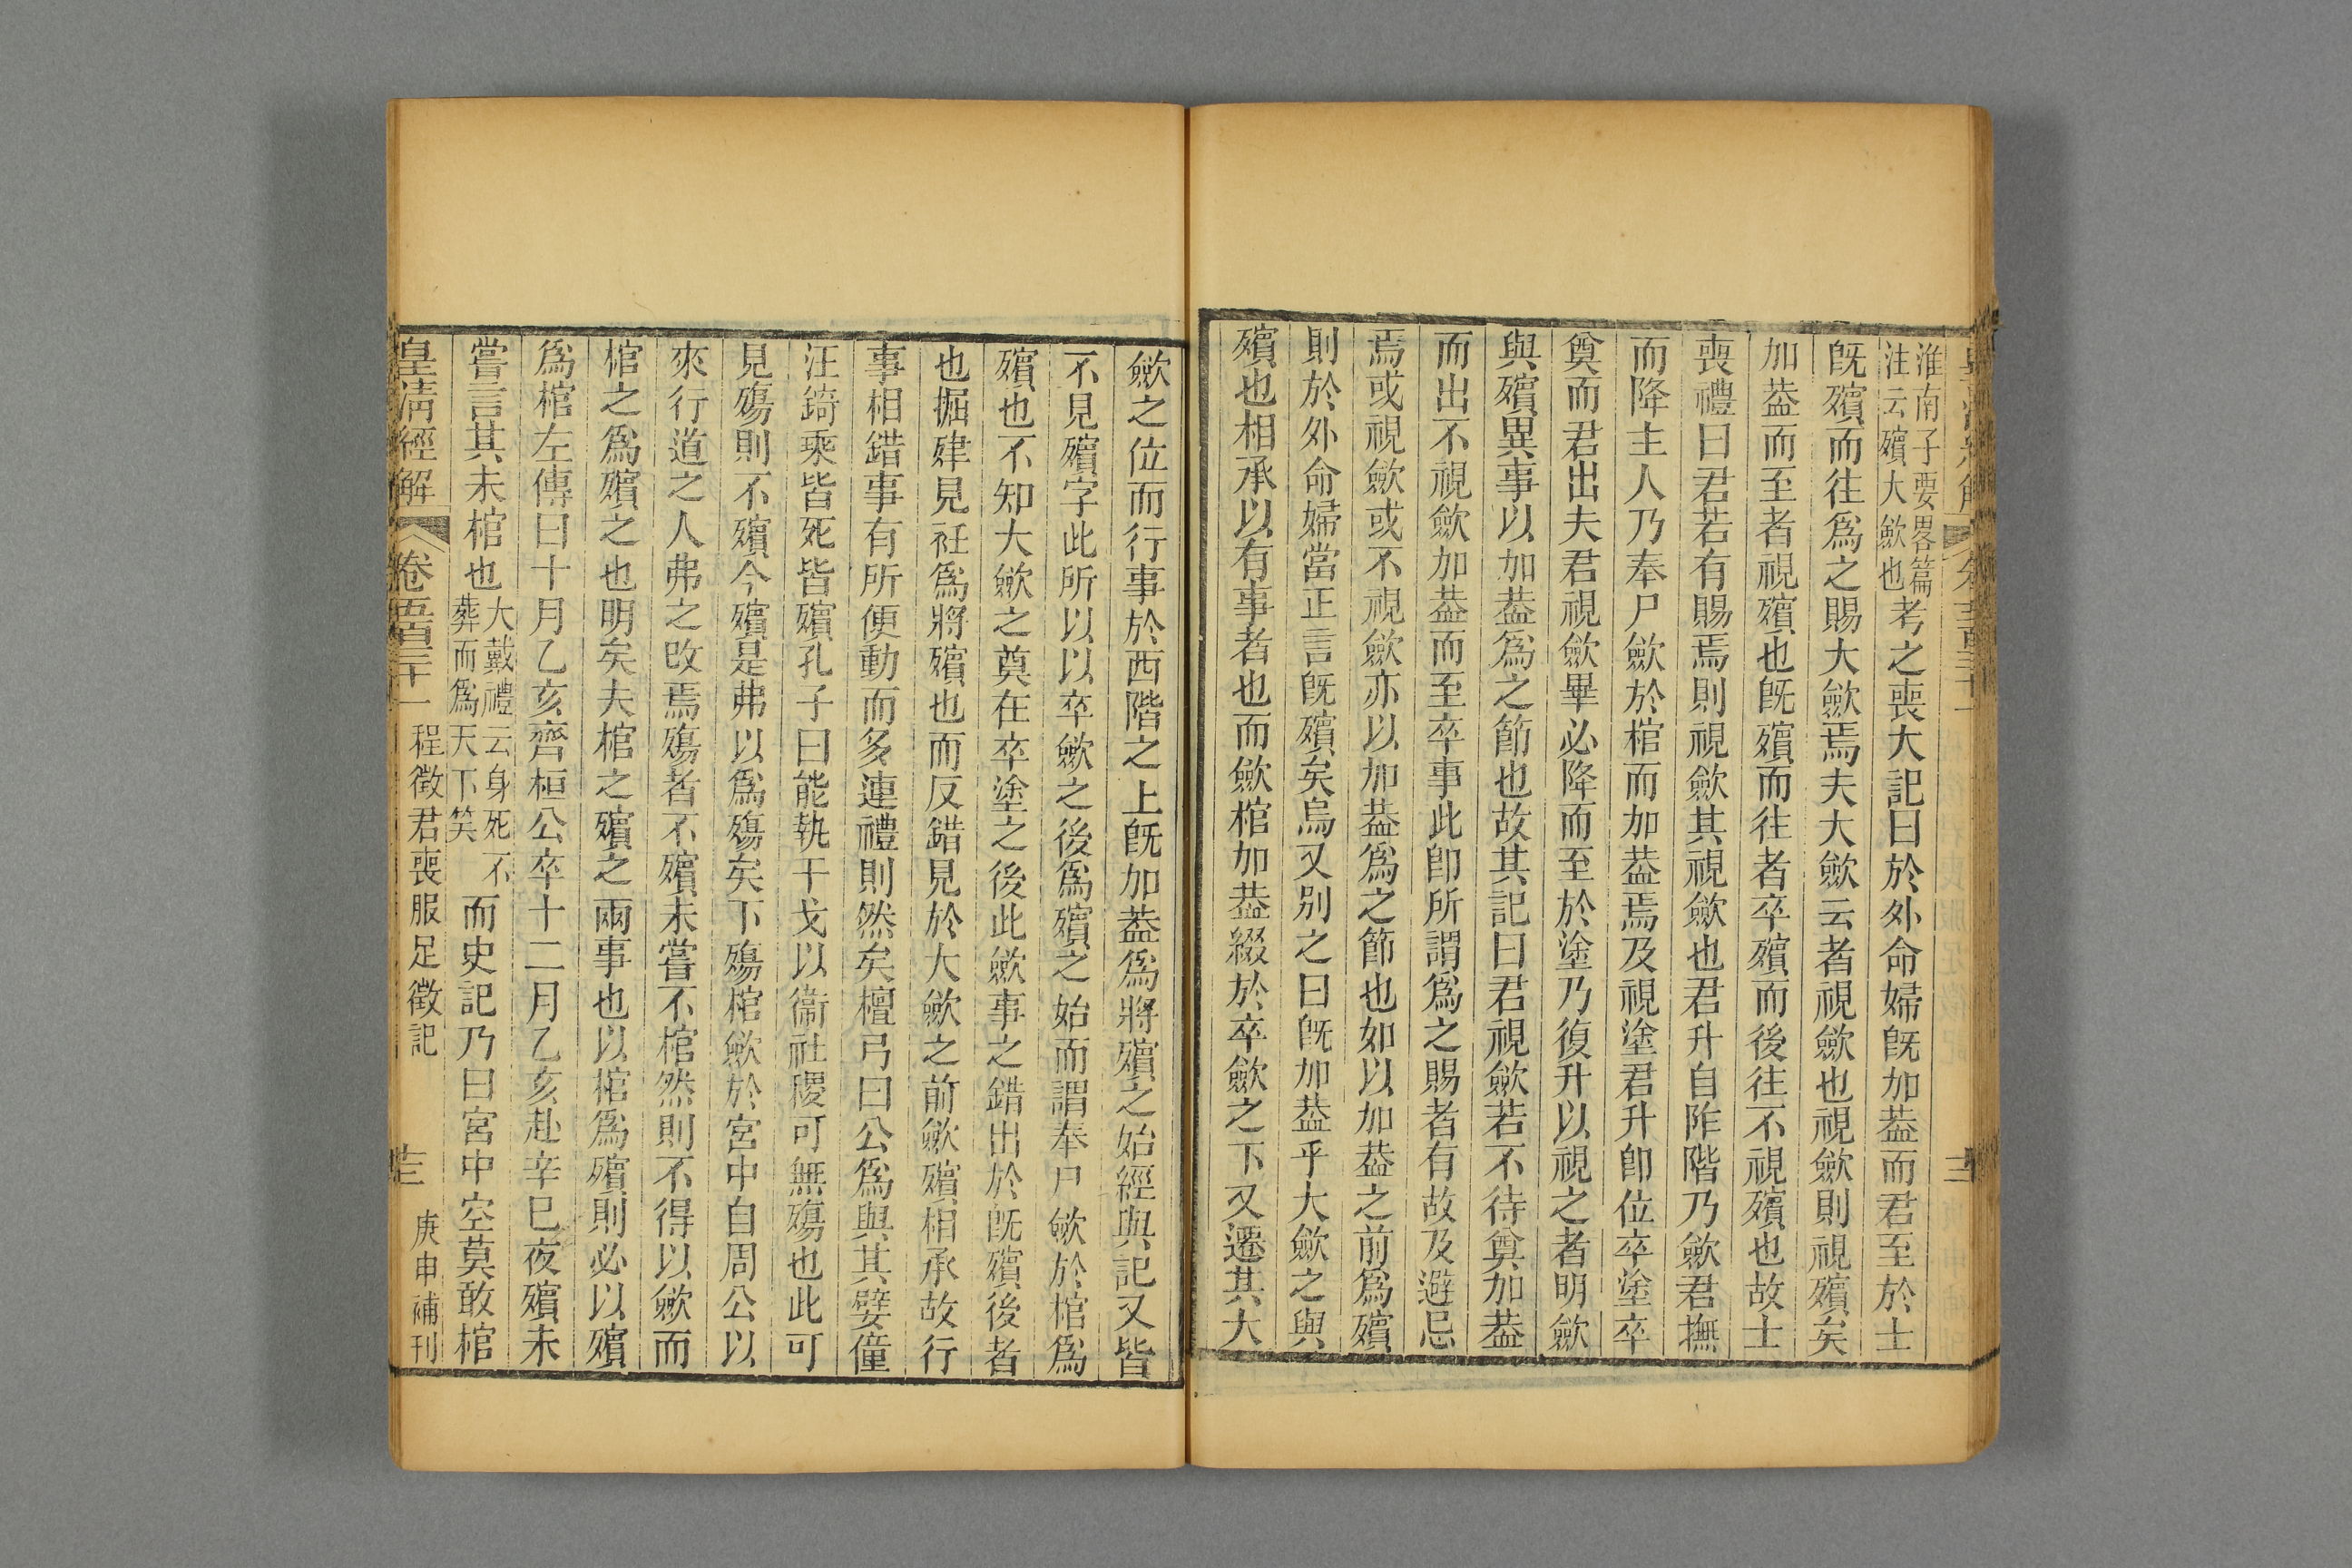 淮南子要畧篇
注云殯大歛也
考之喪大記曰於外命婦旣加葢而君至於士
旣殯而往爲之賜大歛焉夫大歛云者視歛也視歛則視殯矣
加葢而至者視殯也旣殯而往者卒殯而後往不視殯也故士
喪禮曰君若有賜焉則視歛其視歛也君升自阼階乃歛君撫
而降主人乃奉尸歛於棺而加葢焉及視塗君升卽位卒塗卒
奠而君出夫君視歛畢必降而至於塗乃復升以視之者明歛
與殯異事以加葢爲之節也故其記曰君視歛若不待奠加葢
而出不視歛加葢而至卒事此卽所謂爲之賜者有故及避忌
焉或視歛或不視歛亦以加葢爲之節也如以加葢之前爲殯
則於外命婦當正言旣殯矣烏又別之曰旣加葢乎大歛之與
殯也相承以有事者也而歛棺加葢綴於卒歛之下又遷其大
歛之位而行事於西階之上旣加葢爲將殯之始經與記又皆
不見殯字此所以以卒歛之後爲殯之始而謂奉尸歛於棺爲
殯也不知大歛之奠在卒塗之後此歛事之錯出於旣殯後者
也掘肂見衽爲將殯也而反錯見於大歛之前歛殯相承故行
事相錯事有所便動而多連禮則然矣檀弓曰公爲與其嬖僮
汪錡乘皆死皆殯孔子曰能執干戈以衞社稷可無殤也此可
見殤則不殯今殯是弗以爲殤矣下殤棺歛於宮中自周公以
來行道之人弗之改焉殤者不殯未嘗不棺然則不得以歛而
棺之爲殯之也明矣夫棺之殯之兩事也以棺爲殯則必以殯
爲棺左傳曰十月乙亥齊桓公卒十二月乙亥赴辛巳夜殯未
嘗言其未棺也
大戴禮云身死不
葬而爲天下笑
而史記乃曰宮中空莫敢棺
皇淸經解 卷五百三十一 程徵君喪服足徵記 三 庚申補刊